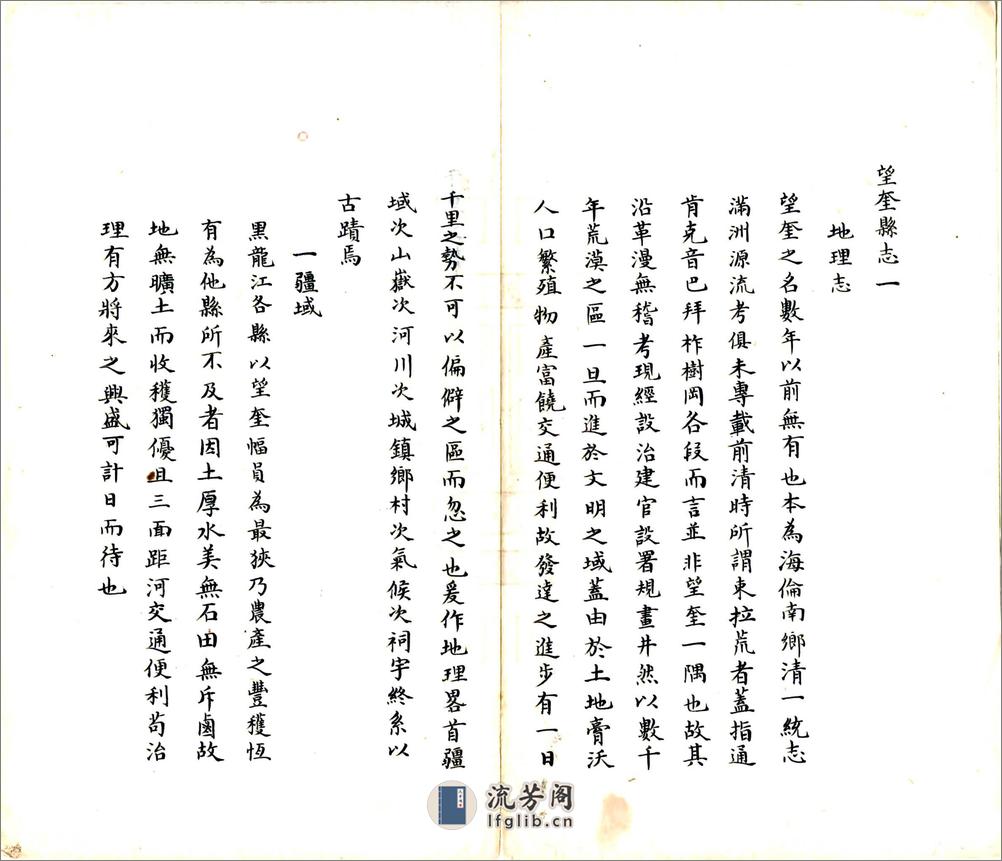 望奎縣志一
地理志
望奎之名數年以前無有也本為海倫南鄉清一統志
滿洲源流考俱未專載前清時所謂東拉荒者蓋指通
肯克音巴拜柞樹岡各段而言並非望奎一隅也故其
沿革漫無稽考現經設治建官設署規畫井然以數千
年荒漠之區一旦而進於文明之域蓋由於土地膏沃
人口繁殖物產富饒交通便利故發達之進步有一日
千里之勢不可以偏僻之區而忽之也爰作地理畧首疆
域次山嶽次河川次城鎮鄉村次氣候次祠宇終系以
古蹟焉
一疆域
黑龍江各縣以望奎幅員為最狹乃農產之豐穫恆
有為他縣所不及者因土厚水美無石田無斥鹵故
地無曠土而收穫獨優且三面距河交通便利苟治
理有方將來之興盛可計日而待也
流芳阁
lfglib.cn